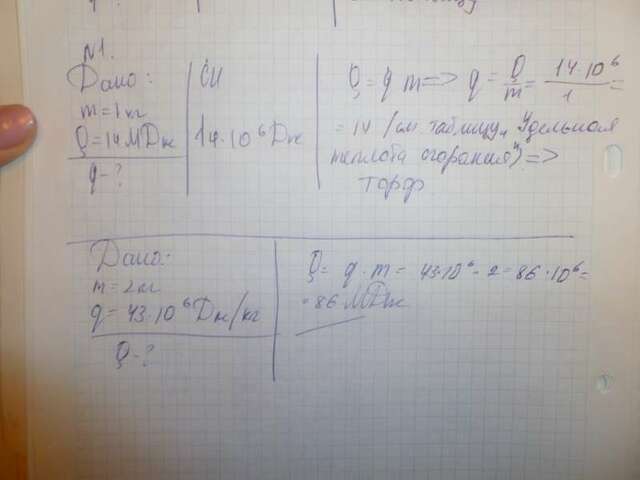 N1.
Дано:
m = 1 кг
Q = 14 МДж
q - ?
СИ
14·10⁶ Дж
Q = q m => q = Q/m = 14·10⁶/1 =
= 14 (см. таблицу „Удельная
теплота сгорания") =>
торф
Дано:
m = 2 кг
q = 43·10⁶ Дж/кг
Q - ?
Q = q · m = 43·10⁶ · 2 = 86·10⁶ =
= 86 МДж